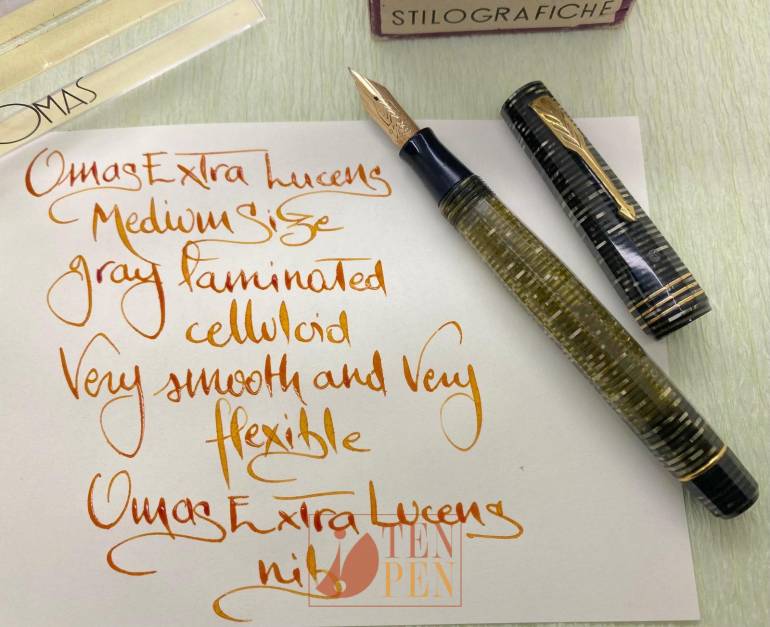 STILOGRAFICHE
OMAS
Omas Extra Lucens
Medium Size
gray laminated
celluloid
Very smooth and Very
flexible
Omas Extra Lucens
nib.
TEN
PEN